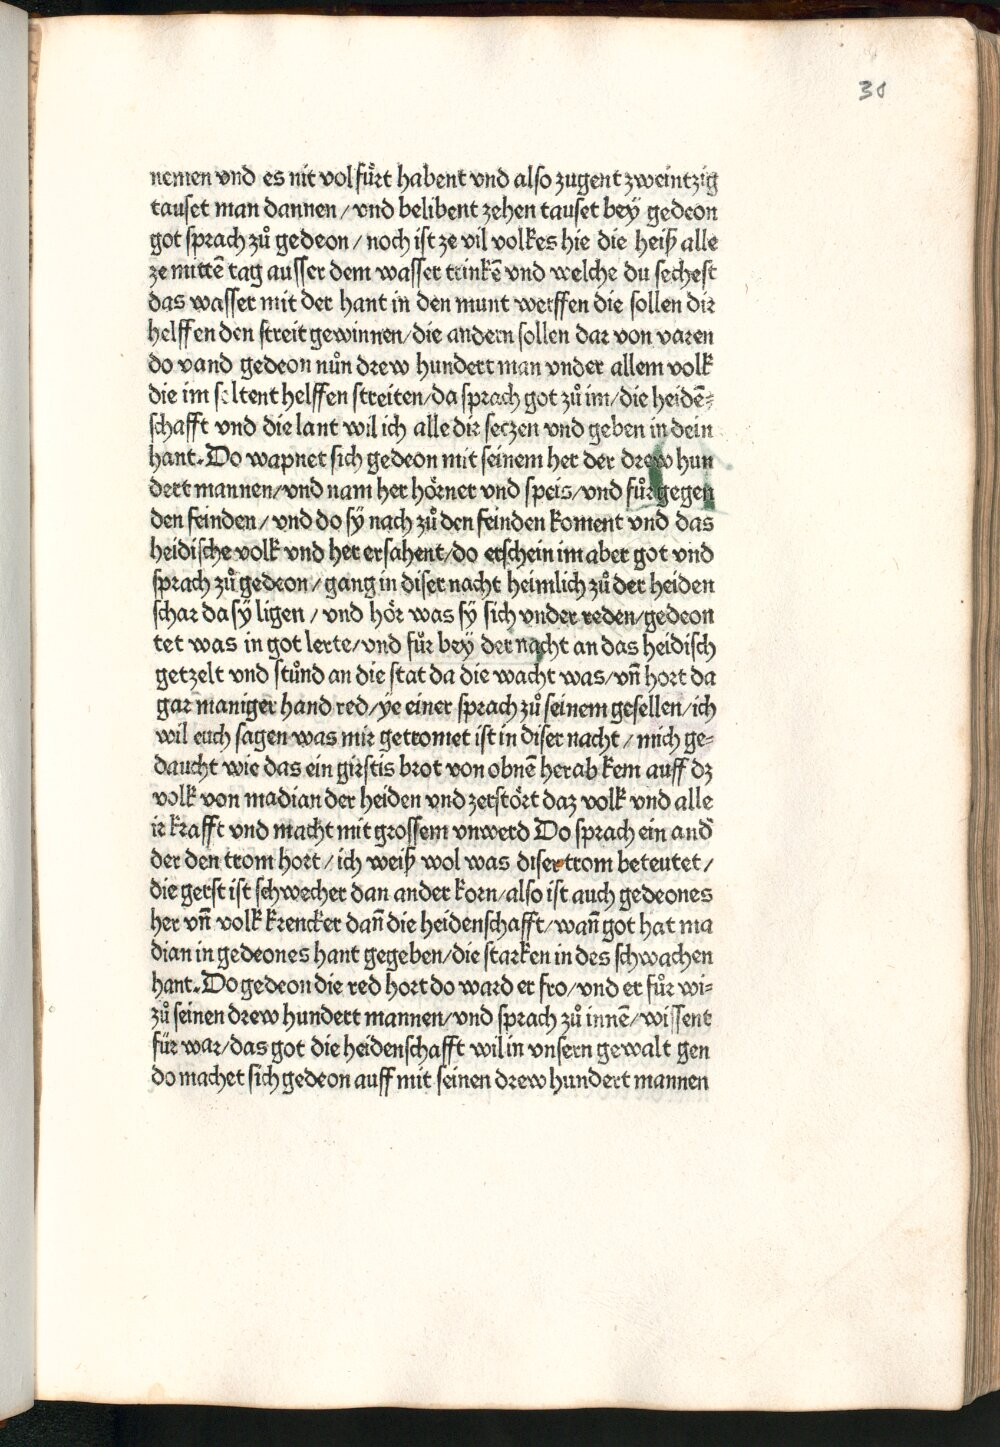 38
nemen vnd es nit volfu̇rt habent vnd also zugent zweintzig
tauset man dannen / vnd belibent zehen tauset bey̋ gedeon
got sprach zů gedeon / noch ist ze vil volkes hie die heiß alle
ze mittē tag ausser dem wasser trinkē vnd welche du sechest
das wasser mit der hant in den munt werffen die sollen dir
helffen den streit gewinnen / die andern sollen dar von varen
do vand gedeon nůn drew hundert man vnder allem volk
die im soltent helffen streiten / da sprach got zů im / die heidē⸗
schafft vnd die lant wil ich alle dir seczen vnd geben in dein
hant. Do wapnet sich gedeon mit seinem her der drew hun
dert mannen / vnd nam her hörner vnd speis / vnd fůr gegen
den feinden / vnd do sy̋ nach zů den feinden koment vnd das
heidische volk vnd her ersahent / do erschein im aber got vnd
sprach zů gedeon / gang in diser nacht heimlich zů der heiden
schar da sy̋ ligen / vnd hör was sy̋ sich vnder reden / gedeon
tet was in got lerte / vnd fůr bey̋ der nacht an das heidisch
getzelt vnd stůnd an die stat da die wacht was / vn̄ hort da
gar maniger hand red / ye einer sprach zů seinem gesellen / ich
wil euch sagen was mir getromet ist in diser nacht / mich ge⸗
daucht wie das ein girstis brot von obnē herab kem auff dz
volk von madian der heiden vnd zerstört daz volk vnd alle
ir krafft vnd macht mit grossem vnwerd Do sprach ein and̄
der den trom hort / ich weiß wol was diser trom beteutet /
die gerst ist schwecher dan ander korn / also ist auch gedeones
her vn̄ volk krencker dan̄ die heidenschafft / wan̄ got hat ma
dian in gedeones hant gegeben / die starken in des schwachen
hant. Do gedeon die red hort do ward er fro / vnd er fůr wi⸗
zů seinen drew hundert mannen / vnd sprach zů innē / wissent
für war / das got die heidenschafft wil in vnsern gewalt gen
do machet sich gedeon auff mit seinen drew hundert mannen